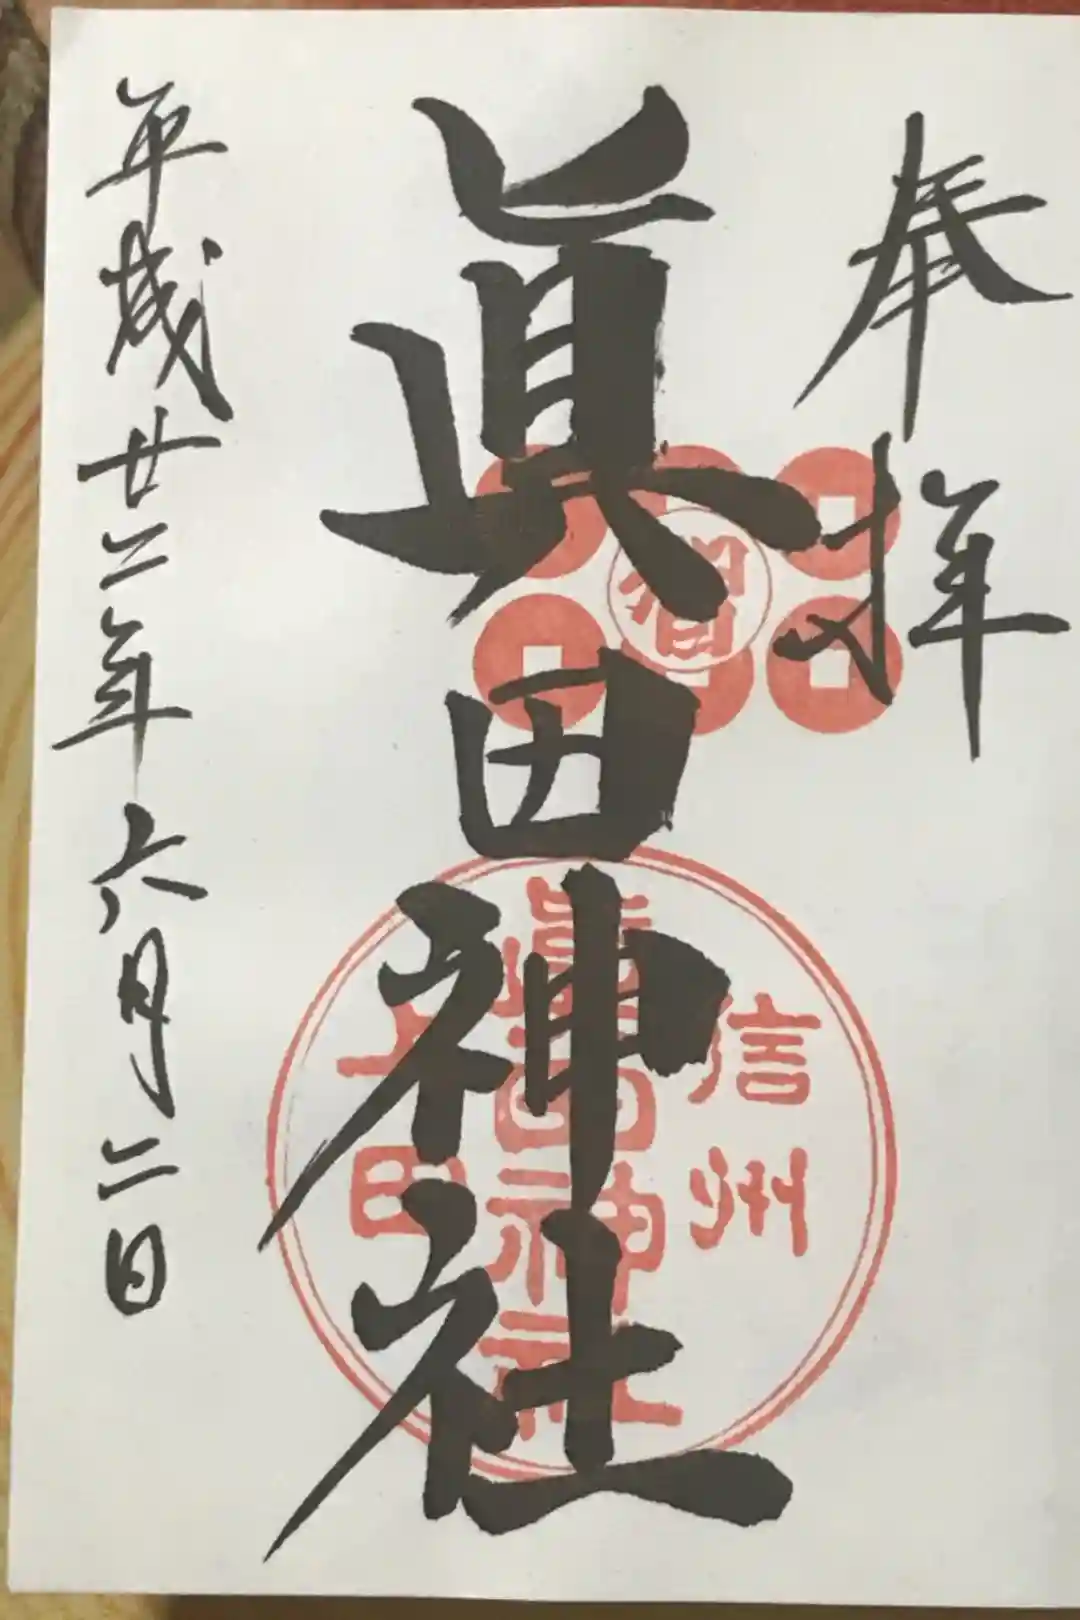 奉拝
眞田神社
信州
眞田神社
上田
智
平成廿二年六月二日